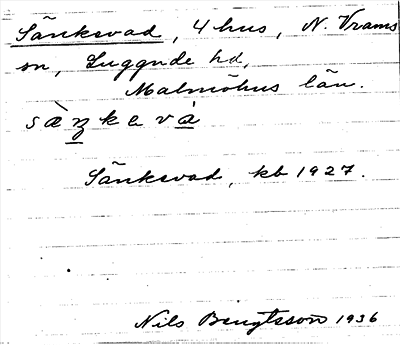 Sänksvad, 4 hus, N. Vrams
sn, Luggude hd,
Malmöhus län.
Sänksvad, kb 1927.
Nils Bengtsson 1936